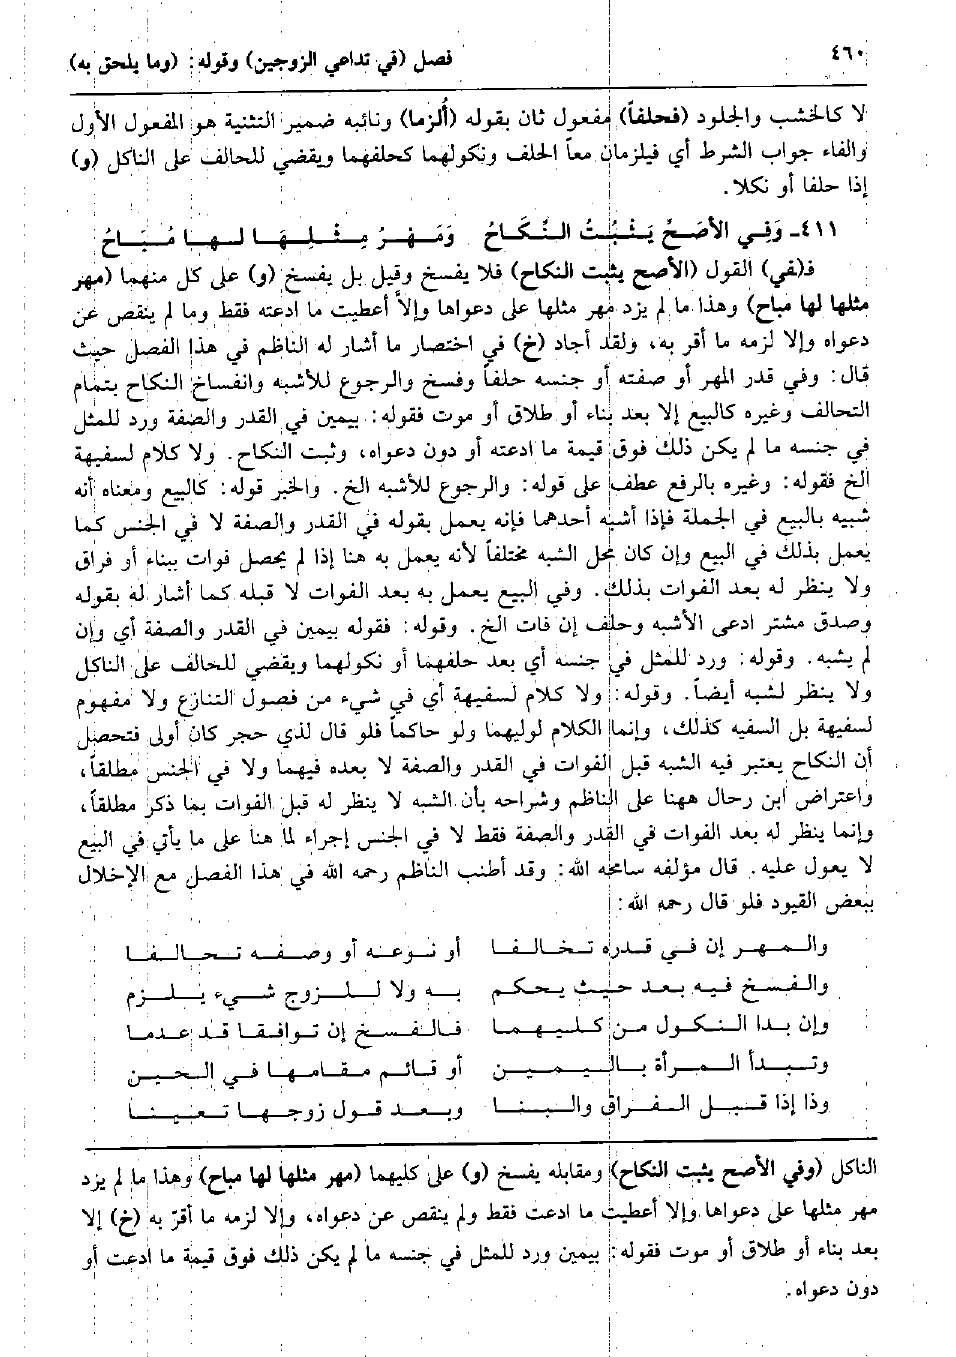 ٤٦٠
فصل (في تداعي الزوجين) وقوله: (وما يلحق به)
لا كالخشب والجلود (فحلفاً) مفعول ثان بقوله (أُلزما) ونائبه ضمير التثنية هو المفعول الأول
والفاء جواب الشرط أي فيلزمان معاً الحلف ونكولهما كحلفهما ويقضي للحالف على الناكل (و)
إذا حلفا أو نكلا.
٤١١ـ وَفِي الأصَحِّ يَثْبُتُ النِّكَاحُ وَمَهْرُ مِثْلِهَا لَهَا مُبَاحُ
فـ(في) القول (الأصح يثبت النكاح) فلا يفسخ وقيل بل يفسخ (و) على كل منهما (مهر
مثلها لها مباح) وهذا ما لم يزد مهر مثلها على دعواها وإلاَّ أعطيت ما ادعته فقط وما لم ينقص عن
دعواه وإلا لزمه ما أقر به، ولقد أجاد (خ) في اختصار ما أشار له الناظم في هذا الفصل حيث
قال: وفي قدر المهر أو صفته أو جنسه حلفاً وفسخ والرجوع للأشبه وانفساخ النكاح بتمام
التحالف وغيره كالبيع إلا بعد بناء أو طلاق أو موت فقوله: بيمين في القدر والصفة ورد للمثل
في جنسه ما لم يكن ذلك فوق قيمة ما ادعته أو دون دعواه، وثبت النكاح. ولا كلام لسفيهة
الخ فقوله: وغيره بالرفع عطف على قوله: والرجوع للأشبه الخ. والخبر قوله: كالبيع ومعناه أنه
شبيه بالبيع في الجملة فإذا أشبه أحدهما فإنه يعمل بقوله في القدر والصفة لا في الجنس كما
يعمل بذلك في البيع وإن كان محل الشبه مختلفاً لأنه يعمل به هنا إذا لم يحصل فوات ببناء أو فراق
ولا ينظر له بعد الفوات بذلك. وفي البيع يعمل به بعد الفوات لا قبله كما أشار له بقوله
وصدق مشتر ادعى الأشبه وحلف إن فات الخ. وقوله: فقوله بيمين في القدر والصفة أي وإن
لم يشبه. وقوله: ورد للمثل في جنسه أي بعد حلفهما أو نكولهما ويقضي للحالف على الناكل
ولا ينظر لشبه أيضاً. وقوله: ولا كلام لسفيهة أي في شيء من فصول التنازع ولا مفهوم
لسفيهة بل السفيه كذلك، وإنما الكلام لوليهما ولو حاكماً فلو قال لذي حجر كان أولى فتحصل
أن النكاح يعتبر فيه الشبه قبل الفوات في القدر والصفة لا بعده فيهما ولا في الجنس مطلقاً،
واعتراض ابن رحال ههنا على الناظم وشراحه بأن الشبه لا ينظر له قبل الفوات بما ذكر مطلقاً،
وإنما ينظر له بعد الفوات في القدر والصفة فقط لا في الجنس إجراء لما هنا على ما يأتي في البيع
لا يعول عليه. قال مؤلفه سامحه الله: وقد أطنب الناظم رحمه الله في هذا الفصل مع الإخلال
ببعض القيود فلو قال رحمه الله:
والمهر إن في قدره تخالفا أو نوعه أو وصفه تحالفا
والفسخ فيه بعد حيث يحكم به ولا للزوج شيء يلزم
وإن بدا النكول من كليهما فالفسخ إن توافقا قد عدما
وتبدأ المرأة باليمين أو قائم مقامها في الحين
وذا إذا قبل الفراق والبنا وبعد قول زوجها تعينا
الناكل (وفي الأصح يثبت النكاح) ومقابله يفسخ (و) على كليهما (مهر مثلها لها مباح) وهذا ما لم يزد
مهر مثلها على دعواها وإلا أعطيت ما ادعت فقط ولم ينقص عن دعواه، وإلا لزمه ما أقرّ به (خ) إلا
بعد بناء أو طلاق أو موت فقوله: بيمين ورد للمثل في جنسه ما لم يكن ذلك فوق قيمة ما ادعت أو
دون دعواه.